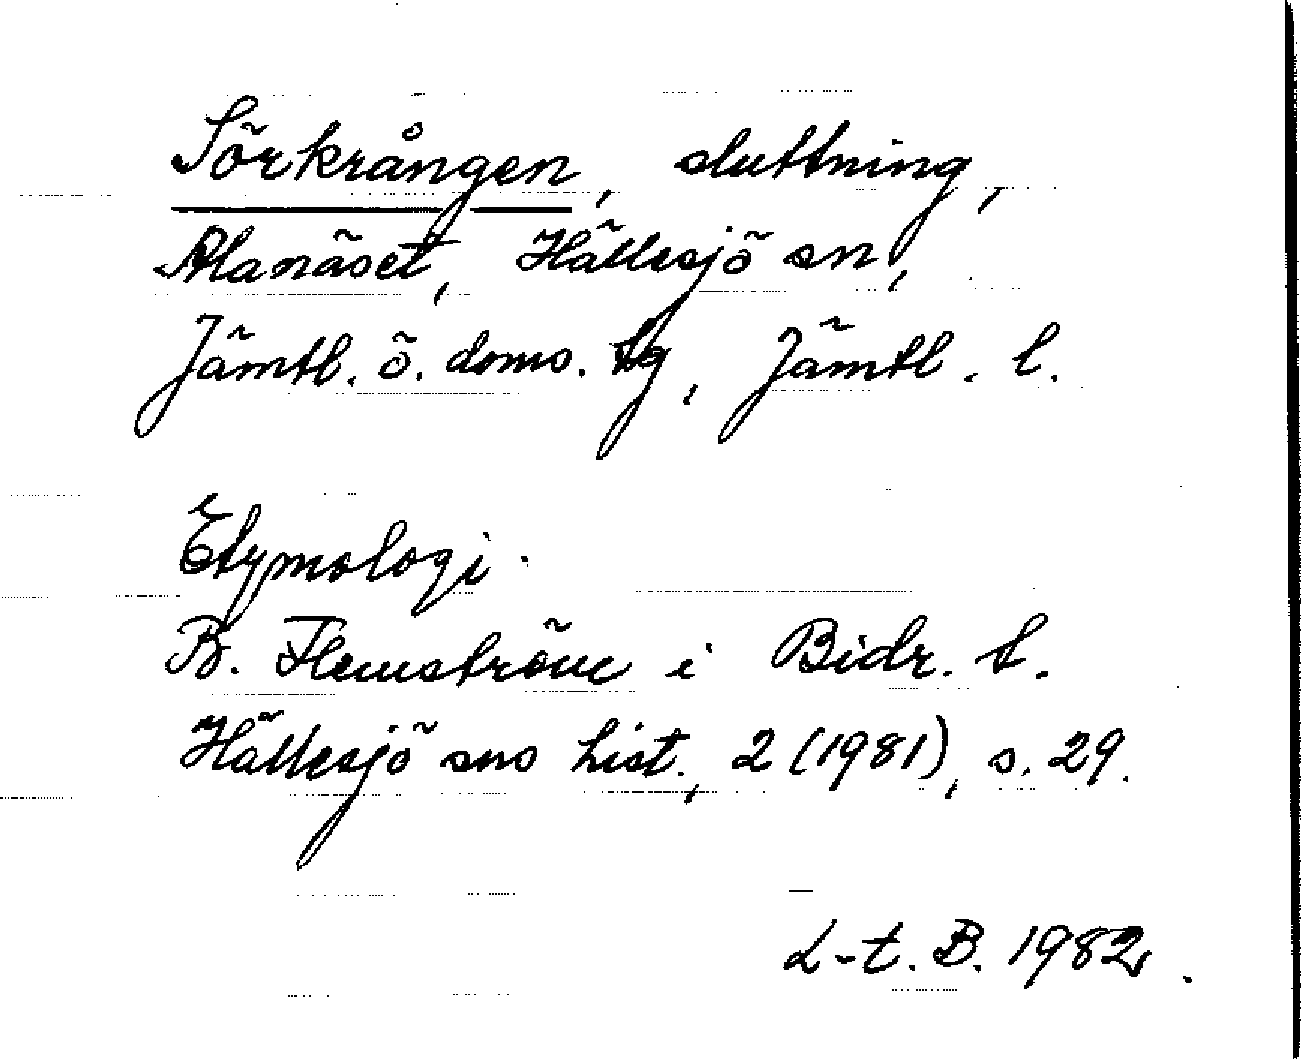 Sörkrången, sluttning,
Alanäset, Hällesjö sn,
Jämtl. ö. doms. tg, Jämtl. l.
Etymologi.
B. Flemström i Bidr. t.
Hällesjö sns hist., 2 (1981), s. 29.
L-t. B. 1982.